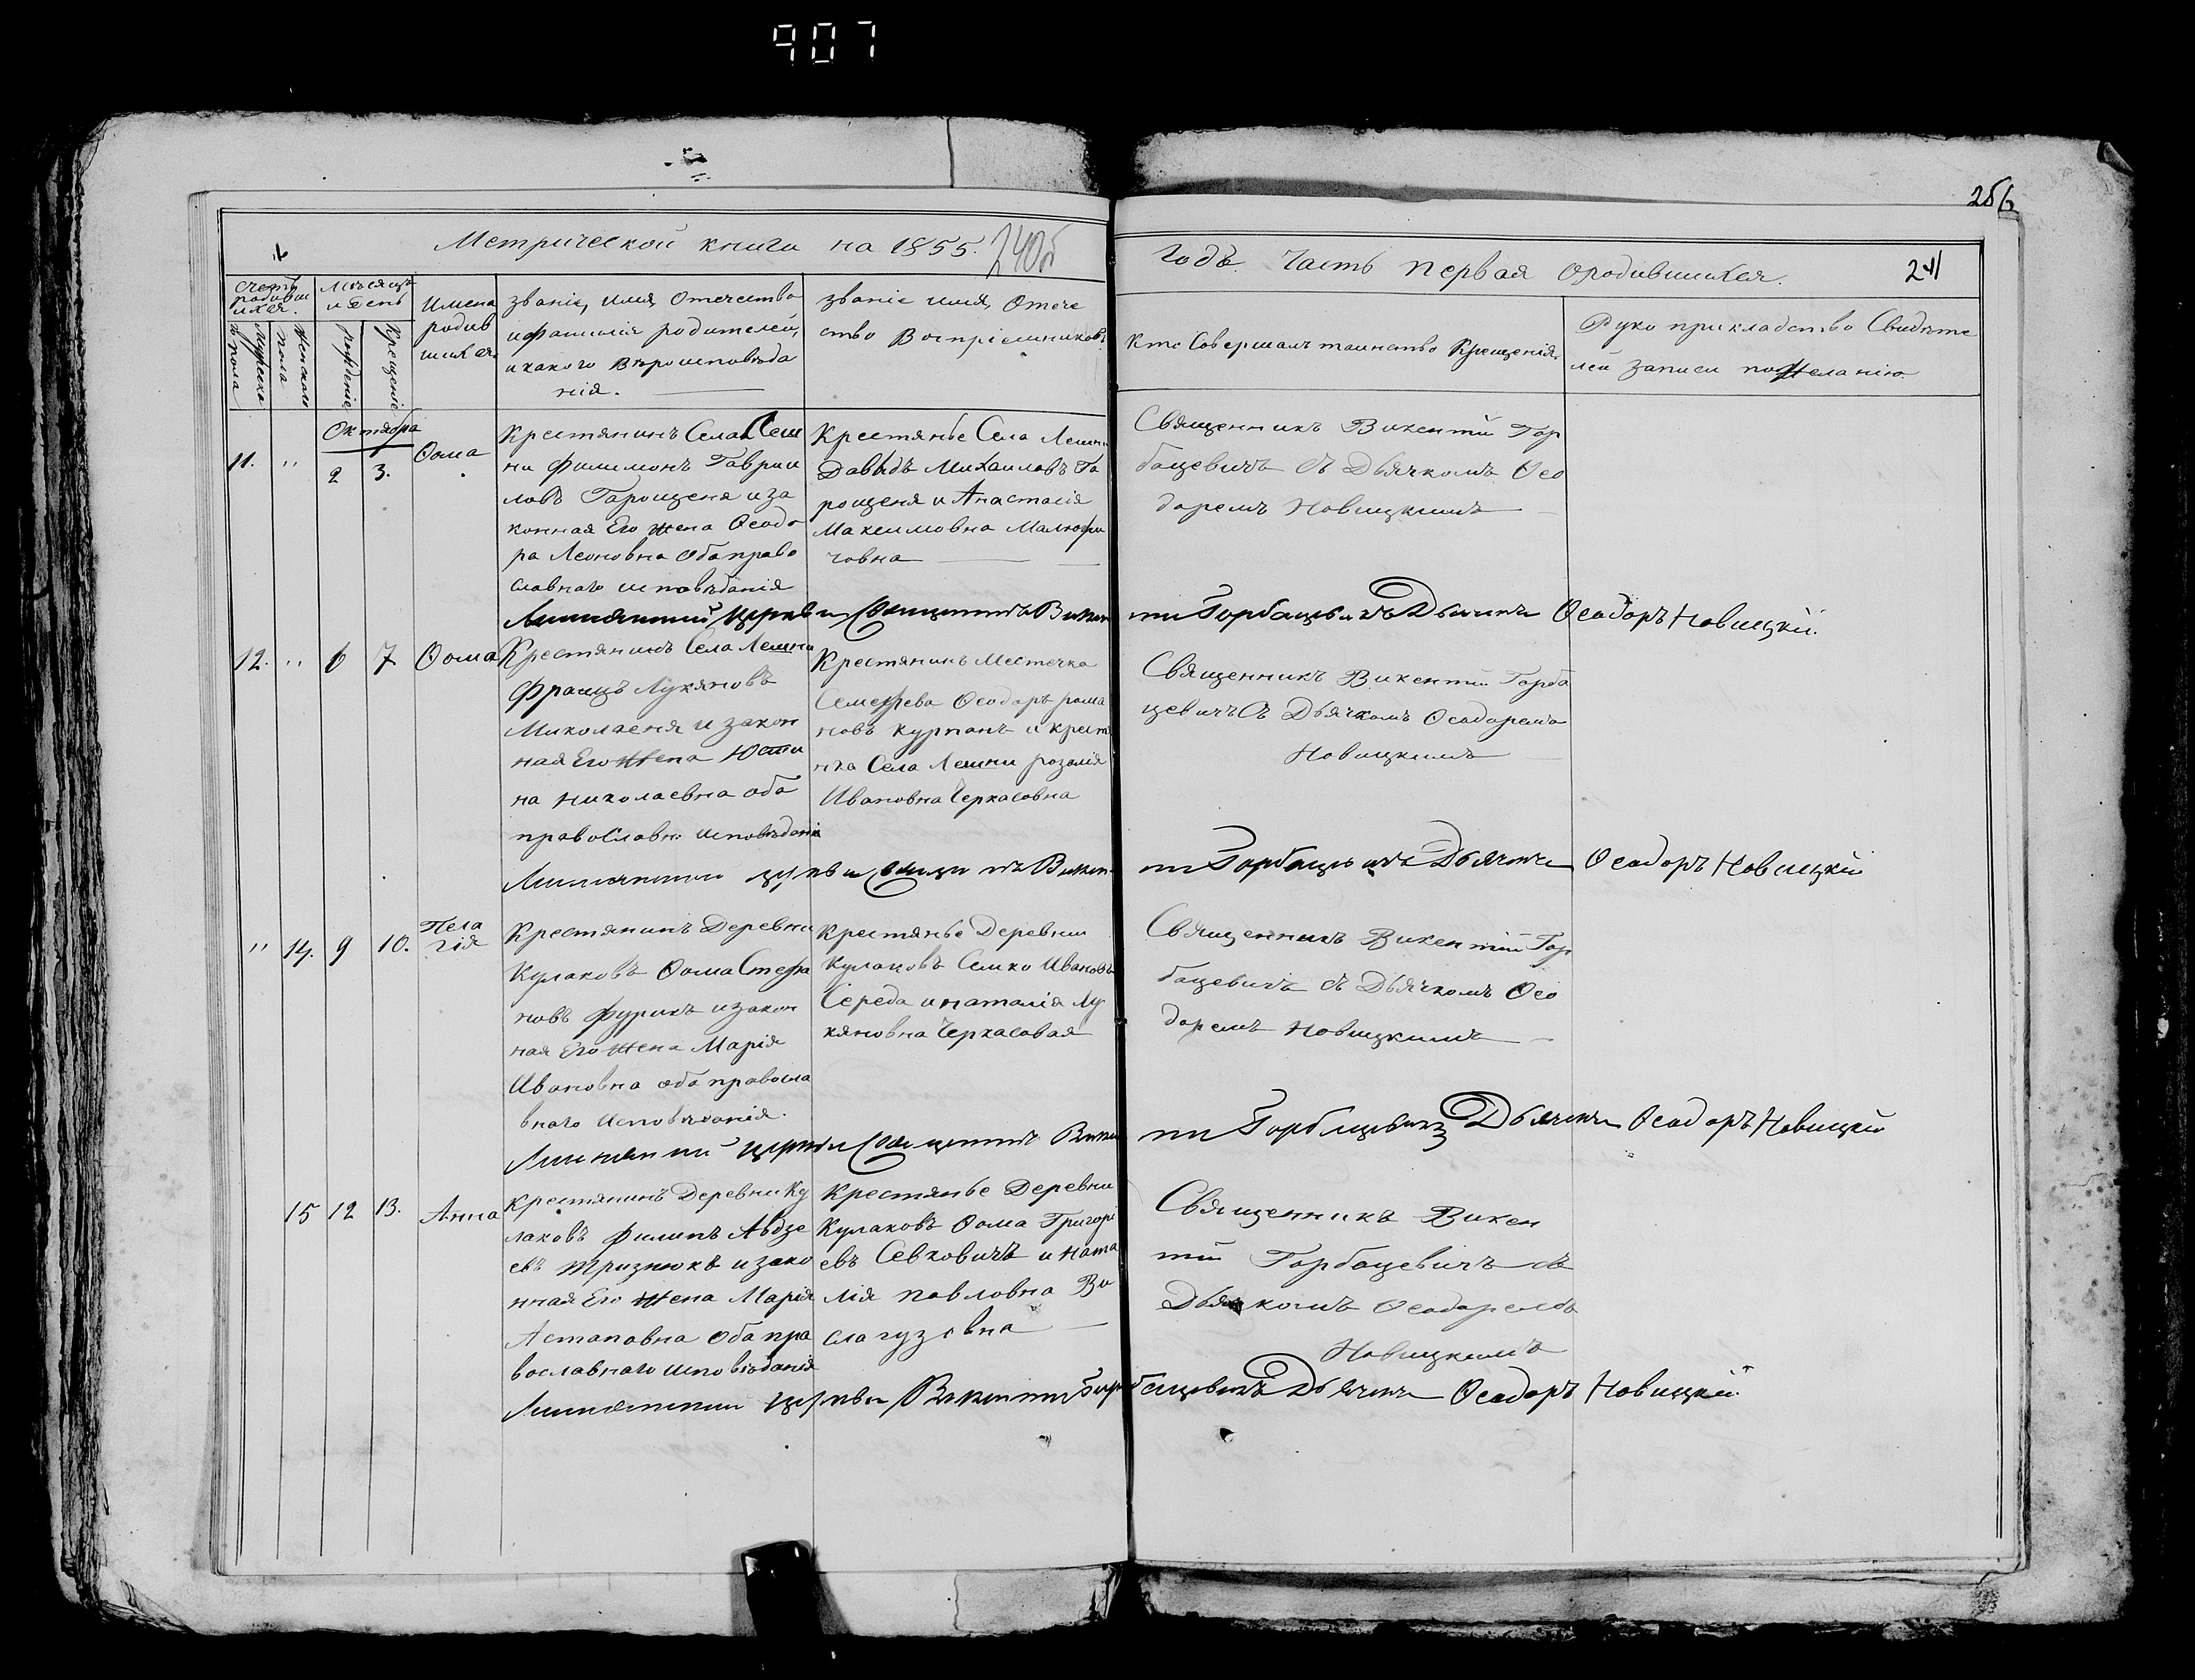 907
286
Метрической книги на 1855.
240об
Годъ. Часть первая о родившихся.
241
Счетъ родившихся.
Мужеска пола
Женскаго пола
Месяцъ и День
Рожденіе
Крещеніе
Имена родившихся
Званіе, имя, Отчество
и фамилія родителей,
и какого Вѣроисповѣда
нія.
Званіе имя, Отече
ство Воспріемниковъ
Кто Совершалъ таинство Крещенія
Руко прикладство Свидѣте
лей записи по Желанію
Октября
11. " 2 3. Ѳома
Крестянинъ Села Леш
ни Филимонъ Гаври
ловъ Гарощеня и за
конная Его Жена Ѳеодо
ра Леоновна оба право
славнаго исповѣданія
Крестянье Села Лешни
Давыдъ Михаиловъ Га
рощеня и Анастасія
Максимовна
човна
Священникъ Викентій Гор
бацевичъ съ Дьячкомъ Ѳео
доремъ Новицкимъ
церкви Священникъ Викен
тій Горбацевичъ Дьячекъ Ѳеодоръ Новицкій.
12. " 6 7 Ѳома
Крестянинъ Села Лешни
Францъ Лукяновъ
Миколаеня и закон
ная Его Жена Юсти
на Николаевна оба
православн: исповѣданія
Крестянинъ Местечка
Семежева Ѳеодоръ рома
новъ Курпанъ и крест
нка Села Лешни розалія
Ивановна Черкасовна
Священникъ Викентій Горба
цевичъ Съ Дьячкомъ Ѳеодоремъ
Новицкимъ
церкви Священникъ Викен
тій Горбацевичъ Дьячекъ Ѳеодоръ Новицкій
" 14. 9 10. Пела
гія
Крестянинъ Деревни
Кулаковъ Ѳома Стефа
новъ Фурикъ и закон
ная Его Жена Марія
Ивановна оба правосла
внаго Исповѣданія.
Крестянье Деревни
Кулаковъ Семко Ивановъ
Середа и наталія Лу
кяновна Черкасовая
Священникъ Викентій Гор
бацевичъ съ Дьячкомъ Ѳео
доремъ Новицкимъ
церкви Священникъ Викен
тій Горбацевичъ Дьячекъ Ѳеодоръ Новицкій
15 12 13. Анна
Крестянинъ Деревни Ку
лаковъ Филипъ Авдзе
евъ Тризнюкъ и зако
нная Его Жена Марія
Астаповна Оба пра
вославнаго исповѣданія
Крестянье Деревни
Кулаковъ Ѳома Григорі
евъ Севковичъ и ната
лія Павловна Ви
слагузовна
Священникъ Викен
тій Горбацевичъ съ
Дьячкомъ Ѳеодоремъ
Новицкимъ
церкви Викентій Гор
бацевичъ Дьячекъ Ѳеодоръ Новицкій.